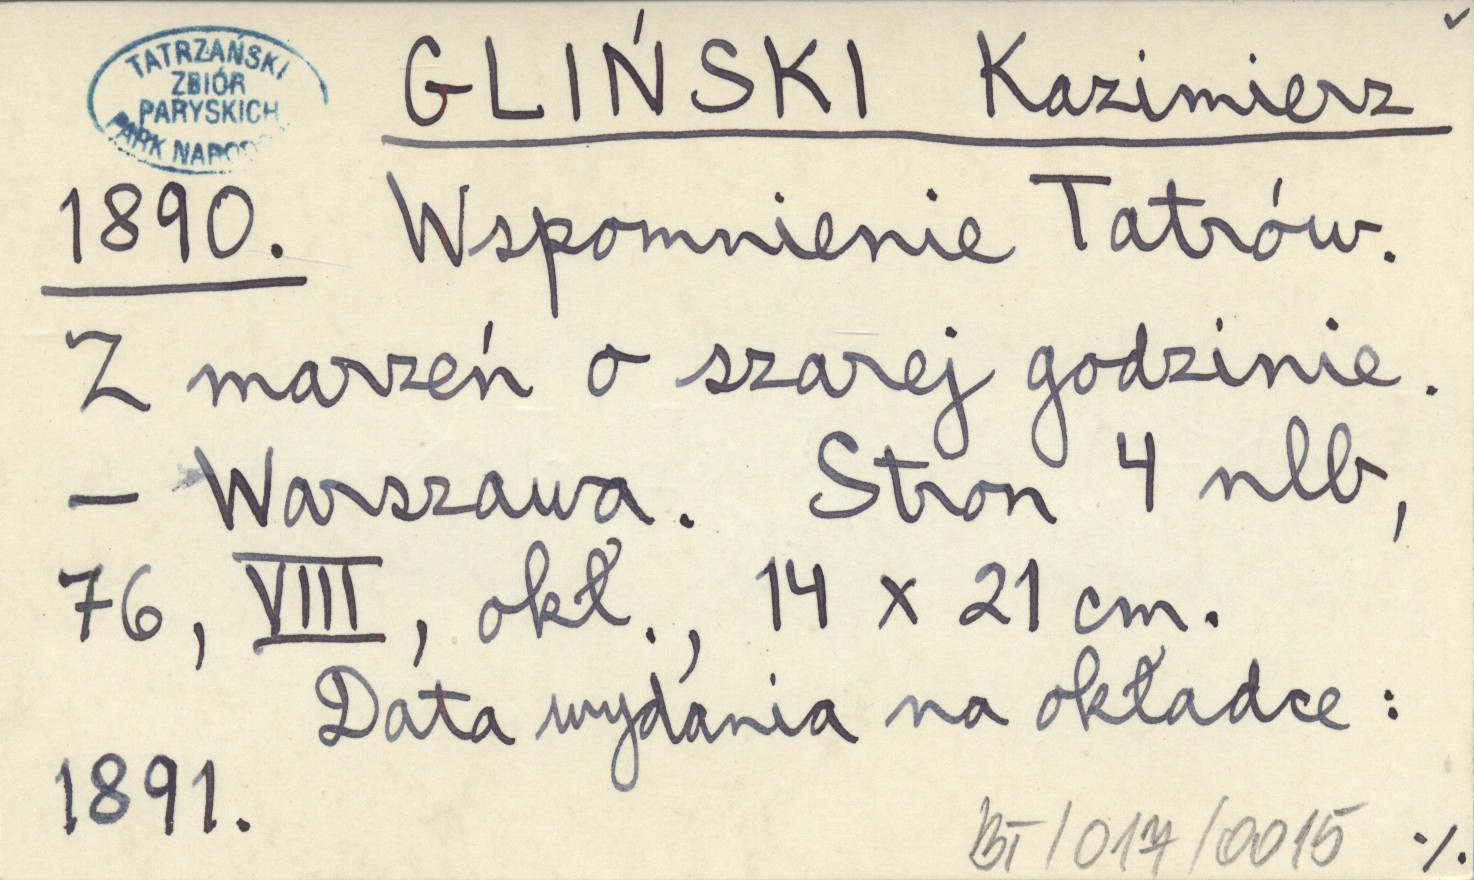 TATRZAŃSKI
ZBIÓR
PARYSKICH
PARK NAROD
GLIŃSKI Kazimierz
1890. Wspomnienie Tatrów.
Z marzeń o szarej godzinie.
– Warszawa. Stron 4 nlb,
76, VIII, okł., 14 x 21 cm.
Data wydania na okładce:
1891.
BT/017/0015 ./.